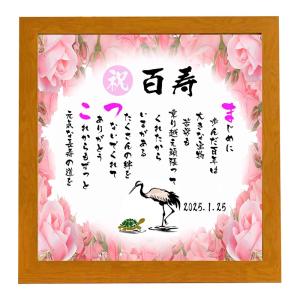 祝 百寿
まじめに
歩んだ百年は
大きな宝物
苦労も
乗り越え頑張って
くれたから
いまがある
たくさんの絆を
つないでくれて
ありがとう
これからもずっと
元気な長寿の道を
2025.1.25